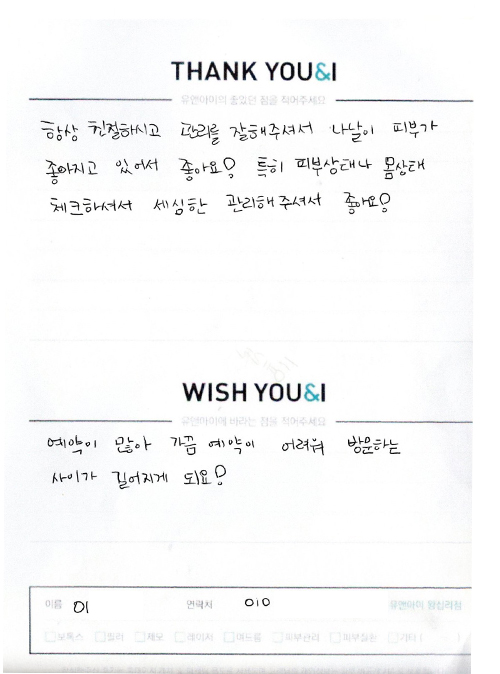 THANK YOU&I
유앤아이의 좋았던 점을 적어주세요
항상 친절하시고 관리를 잘해주셔서 나날이 피부가
좋아지고 있어서 좋아요! 특히 피부상태나 몸상태
체크하셔서 세심한 관리해주셔서 좋아요!
WISH YOU&I
유앤아이에 바라는 점을 적어주세요
예약이 많아 가끔 예약이 어려워 방문하는
사이가 길어지게 되요!
이름 이 연락처 010 유앤아이 왕십리점
보톡스 필러 제모 레이저 여드름 피부관리 피부질환 기타 (